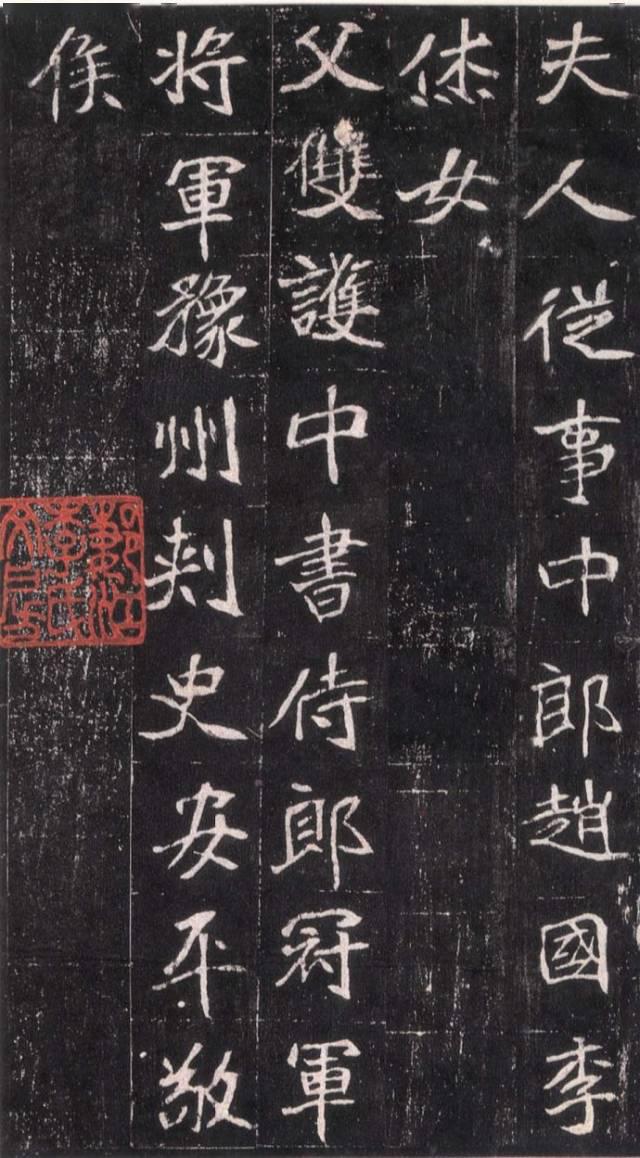 夫人從事中郎趙國李
休女
父雙護中書侍郎冠軍
將軍豫州刺史安平敬
侯